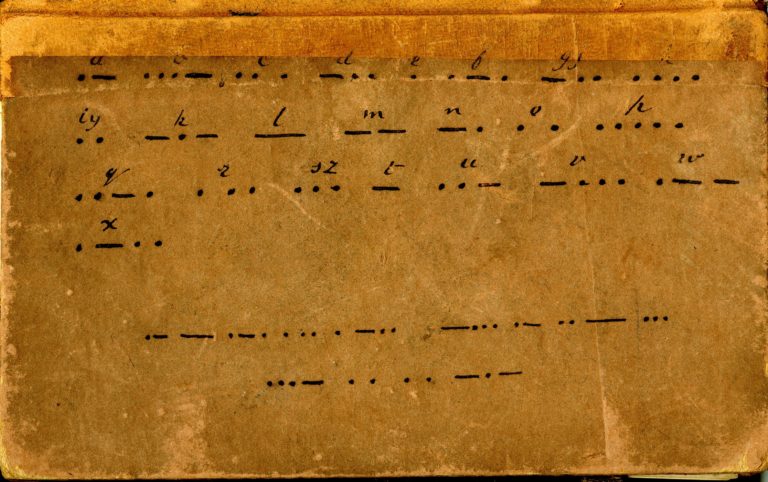 a b c d e f gj h
·— ···— ·· · —·· · ·—· —·· ····
iy k l m n o p
·· —·— — —— —· · · ·····
q r sz t u v w
··—· · ·· ··· — ··— —··· ·——
x
·—··
·— — ·—· · ·· · —·· —··· ·— ·· — ···
···— · · · · —·—